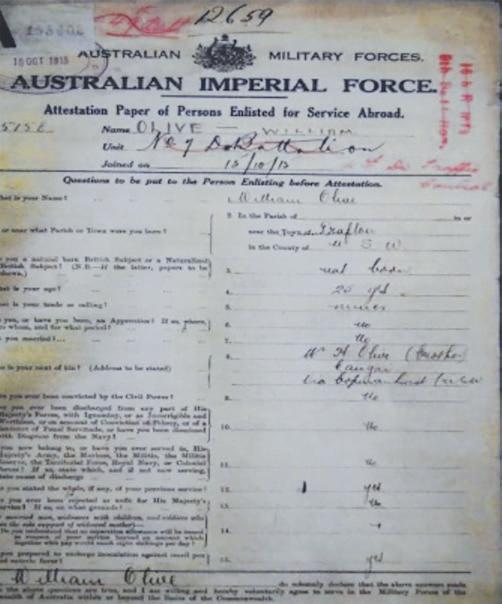 12659
15 OCT 1915
AUSTRALIAN MILITARY FORCES.
AUSTRALIAN IMPERIAL FORCE.
Attestation Paper of Persons Enlisted for Service Abroad.
Name OLIVE — WILLIAM
Unit No 7 D Battalion
Joined on 15/10/15
Questions to be put to the Person Enlisting before Attestation.
hat is your Name?
William Olive
2. In the Parish of in or
or near what Parish or Town were you born?
near the Town of Grafton
in the County of N S W
you a natural born British Subject or a Naturalized
British Subject? (N.B.—If the latter, papers to be
shown.)
3. nat born
hat is your age?
4. 25 yrs
hat is your trade or calling?
5. miner
you, or have you been, an Apprentice? If so, where,
to whom, and for what period?
6. no
you married?
7. No
8. Mr Olive
o is your next of kin? (Address to be stated)
you ever been convicted by the Civil Power?
9. No
you ever been discharged from any part of His
Majesty's Forces, with Ignominy, or as Incorrigible and
Worthless, or on account of Conviction of Felony, or of a
Sentence of Penal Servitude, or have you been dismissed
with Disgrace from the Navy?
10. No
you now belong to, or have you ever served in, His
Majesty's Army, the Marines, the Militia, the Militia
Reserve, the Territorial Force, Royal Navy, or Colonial
Forces? If so, state which, and if not now serving,
state cause of discharge
11. no
you stated the whole, if any, of your previous service?
12. yes
you ever been rejected as unfit for His Majesty's
Service? If so, on what grounds?
13. No
married men, widowers with children, and soldiers who
are the sole support of widowed mother)—
Do you understand that no separation allowance will be issued
in respect of your service beyond an amount which
together with pay would reach eight shillings per day?
14.
you prepared to undergo inoculation against small pox
and enteric fever?
15. yes
William Olive do solemnly declare that the above answers made
the above questions are true, and I am willing and hereby voluntarily agree to serve in the Military Forces of the
wealth of Australia within or beyond the limits of the Commonwealth.